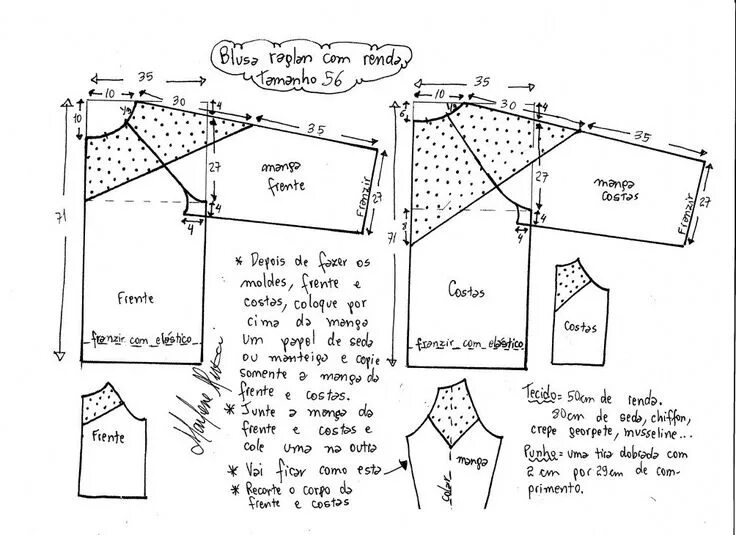 Blusa raglan com renda
tamanho 56
35
10
30
4
10
1/3
35
27
manga
frente
Franzir
27
4
4
71
Frente
franzir com elástico
35
10
30
4
6
1/3
35
27
manga
costas
Franzir
27
4
4
71
Costas
franzir com elástico
* Depois de fazer os
moldes, frente e
costas, coloque por
cima da manga
um papel de seda
ou manteiga e copie
somente a manga da
frente e costas.
* Junte a manga da
frente e costas e
cole uma na outra
* Vai ficar como esta
* Recorte o corpo da
frente e costas
Frente
Costas
manga
colar
Tecido = 50cm de renda.
80cm de seda, chiffon,
crepe georpete, musseline...
Punho = uma tira dobrada com
2 cm por 29cm de com-
primento.